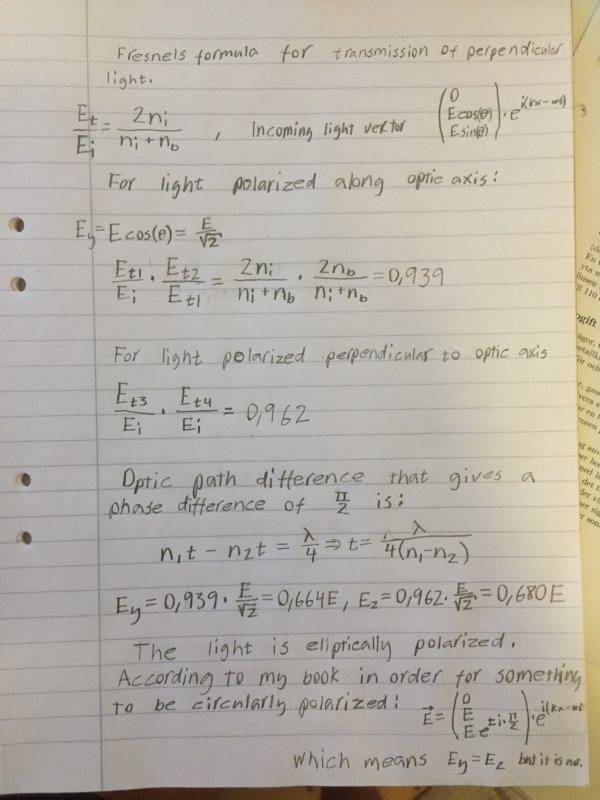 Fresnels formula for transmission of perpendicular
light.
E_t/E_i = 2n_i/(n_i+n_b) , Incoming light vektor (0, E cos(θ), E sin(θ)) · e^{i(kx-wt)}
For light polarized along optic axis:
E_y = E cos(θ) = E/√2
E_t1/E_i · E_t2/E_t1 = 2n_i/(n_i+n_b) · 2n_b/(n_i+n_b) = 0,939
For light polarized perpendicular to optic axis
E_t3/E_i · E_t4/E_i = 0,962
Optic path difference that gives a
phase difference of π/2 is:
n_1t - n_2t = λ/4 ⇒ t = λ/4(n_1-n_2)
E_y = 0,939 · E/√2 = 0,664E, E_z = 0,962 · E/√2 = 0,680E
The light is eliptically polarized.
According to my book in order for something
to be circularly polarized: E⃗ = (0, E, E e^{±i·π/2}) · e^{i(kx-wt)}
which means E_y = E_z but it is no.